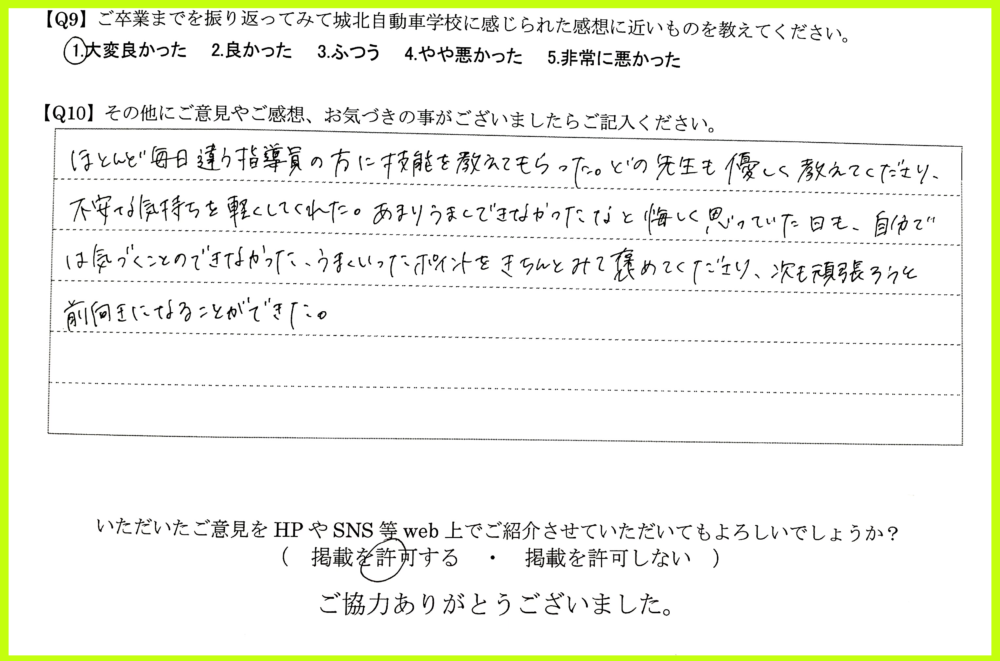 【Q9】ご卒業までを振り返ってみて城北自動車学校に感じられた感想に近いものを教えてください。
1.大変良かった 2.良かった 3.ふつう 4.やや悪かった 5.非常に悪かった
【Q10】その他にご意見やご感想、お気づきの事がございましたらご記入ください。
ほとんど毎日違う指導員の方に技能を教えてもらった。どの先生も優しく教えてくださり、
不安な気持ちを軽くしてくれた。あまりうまくできなかったなと悔しく思っていた日も、自分で
は気づくことのできなかった、うまくいったポイントをきちんとみて褒めてくださり、次も頑張ろうと
前向きになることができた。
いただいたご意見をHPやSNS等web上でご紹介させていただいてもよろしいでしょうか？
（ 掲載を許可する ・ 掲載を許可しない ）
ご協力ありがとうございました。